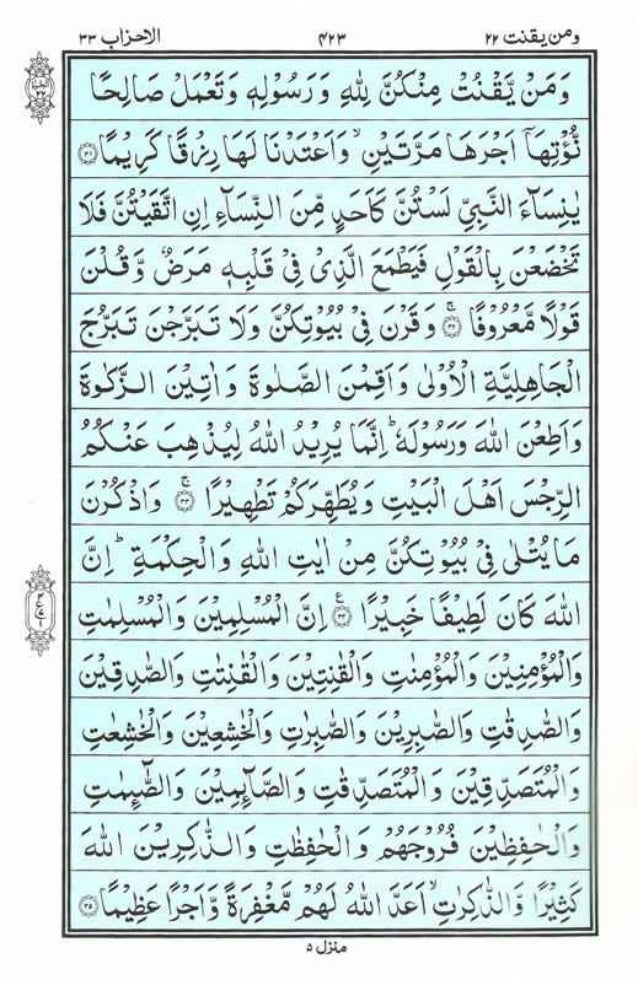 ومن یقنت ۲۲ ۴۲۳ الاحزاب ۳۳
وَمَنْ يَّقْنُتْ مِنْكُنَّ لِلّٰهِ وَرَسُوْلِهٖ وَتَعْمَلْ صَالِحًا
نُّؤْتِهَاۤ اَجْرَهَا مَرَّتَيْنِ ۙ وَاَعْتَدْنَا لَهَا رِزْقًا كَرِيْمًا ۝۳۱
يٰنِسَآءَ النَّبِيِّ لَسْتُنَّ كَاَحَدٍ مِّنَ النِّسَآءِ اِنِ اتَّقَيْتُنَّ فَلَا
تَخْضَعْنَ بِالْقَوْلِ فَيَطْمَعَ الَّذِيْ فِيْ قَلْبِهٖ مَرَضٌ وَّقُلْنَ
قَوْلًا مَّعْرُوْفًا ۝۳۲ۚ وَقَرْنَ فِيْ بُيُوْتِكُنَّ وَلَا تَبَرَّجْنَ تَبَرُّجَ
الْجَاهِلِيَّةِ الْاُوْلٰى وَاَقِمْنَ الصَّلٰوةَ وَاٰتِيْنَ الزَّكٰوةَ
وَاَطِعْنَ اللّٰهَ وَرَسُوْلَهٗ ؕ اِنَّمَا يُرِيْدُ اللّٰهُ لِيُذْهِبَ عَنْكُمُ
الرِّجْسَ اَهْلَ الْبَيْتِ وَيُطَهِّرَكُمْ تَطْهِيْرًا ۝۳۳ۚ وَاذْكُرْنَ
مَا يُتْلٰى فِيْ بُيُوْتِكُنَّ مِنْ اٰيٰتِ اللّٰهِ وَالْحِكْمَةِ ؕ اِنَّ
اللّٰهَ كَانَ لَطِيْفًا خَبِيْرًا ۝۳۴ۧ اِنَّ الْمُسْلِمِيْنَ وَالْمُسْلِمٰتِ
وَالْمُؤْمِنِيْنَ وَالْمُؤْمِنٰتِ وَالْقٰنِتِيْنَ وَالْقٰنِتٰتِ وَالصّٰدِقِيْنَ
وَالصّٰدِقٰتِ وَالصّٰبِرِيْنَ وَالصّٰبِرٰتِ وَالْخٰشِعِيْنَ وَالْخٰشِعٰتِ
وَالْمُتَصَدِّقِيْنَ وَالْمُتَصَدِّقٰتِ وَالصَّآىِٕمِيْنَ وَالصّٰٓىِٕمٰتِ
وَالْحٰفِظِيْنَ فُرُوْجَهُمْ وَالْحٰفِظٰتِ وَالذّٰكِرِيْنَ اللّٰهَ
كَثِيْرًا وَّالذّٰكِرٰتِ ۙ اَعَدَّ اللّٰهُ لَهُمْ مَّغْفِرَةً وَّاَجْرًا عَظِيْمًا ۝۳۵
منزل ۵